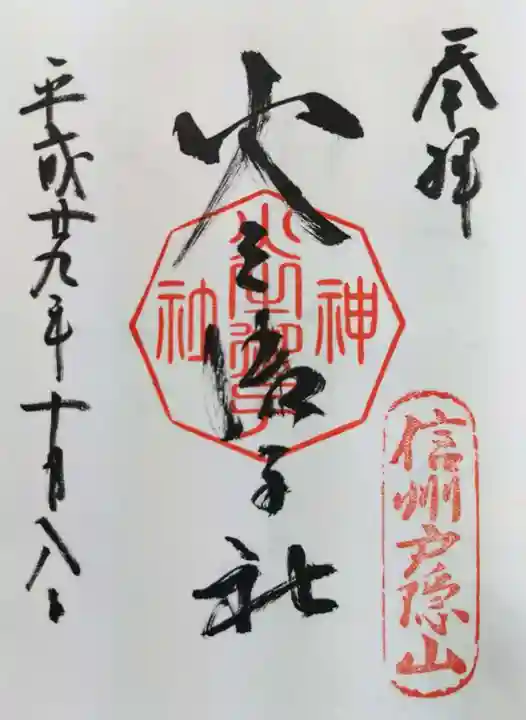 奉拝
信州戸隠山
火之御子社
神
社
平成廿九年十月八日